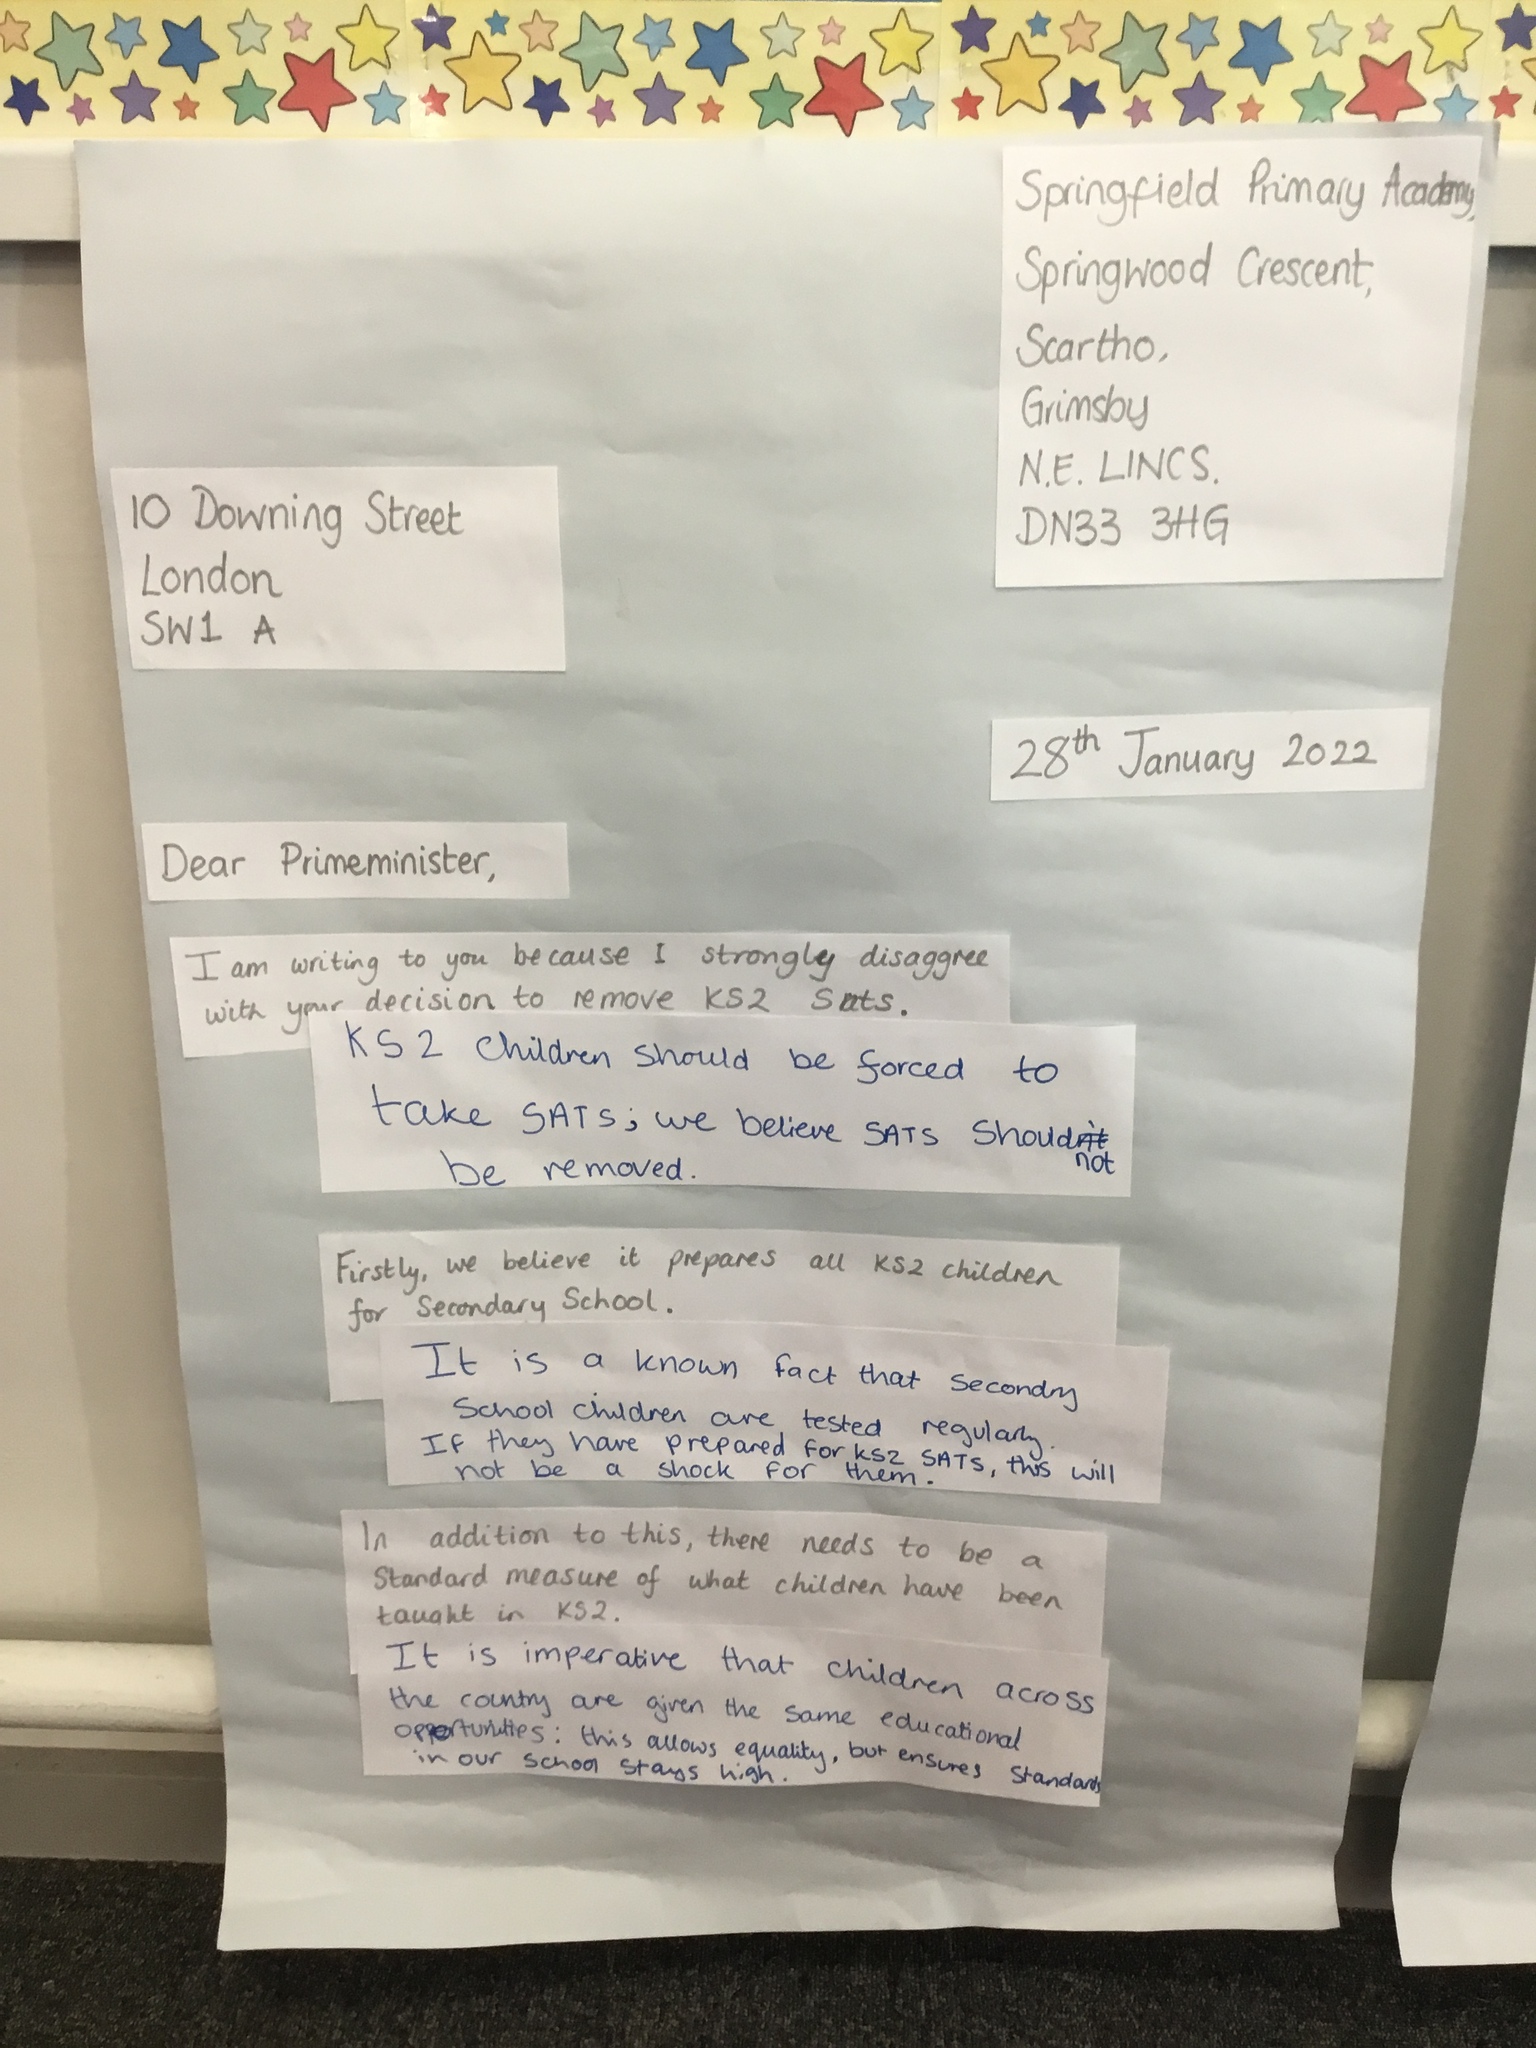 Springfield Primary Academy,
Springwood Crescent,
Scartho,
Grimsby
N.E. LINCS.
DN33 3HG
10 Downing Street
London
SW1 A
28th January 2022
Dear Primeminister,
I am writing to you because I strongly disaggree
with your decision to remove KS2 Sats.
KS2 children should be forced to
take SATS; we believe SATS should
not
be removed.
Firstly, we believe it prepares all KS2 children
for Secondary School.
It is a known fact that secondry
School children are tested regularly.
If they have prepared for KS2 SATS, this will
not be a shock for them.
In addition to this, there needs to be a
Standard measure of what children have been
taught in KS2.
It is imperative that children across
the country are given the same educational
opportunities: this allows equality, but ensures standards
in our school stays high.